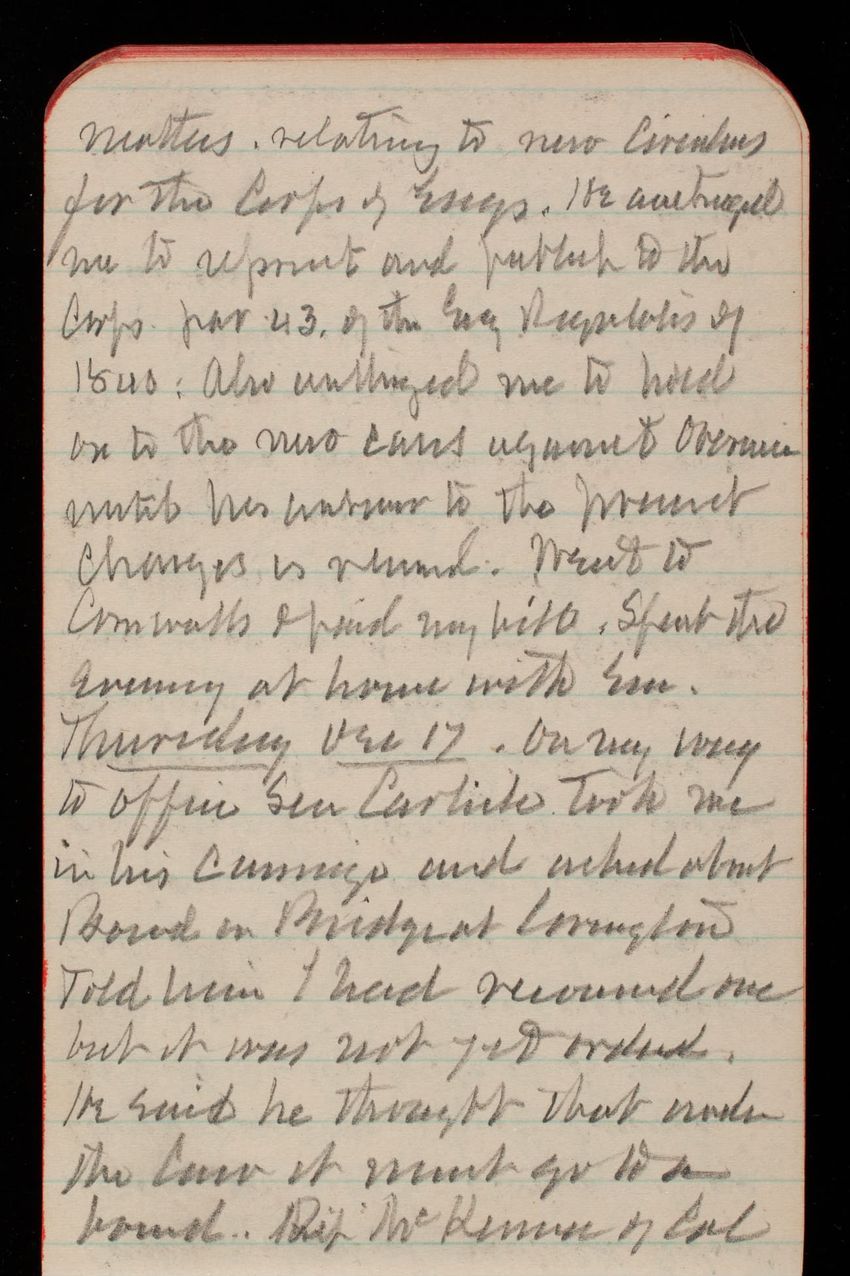 matters. relating to new Circulars
for the Corps of Engrs. He authorized
me to reprint and publish to the
Corps par 43. of the Eng Regulatis of
1840: Also authorized me to hold
on to the new against
until his answer to the present
changes is received. Went to
Cornwalls & paid my bill. Spent the
evening at home with Em.
Thursday Dec 17. On my way
to office Sen Carlisle took me
in his carriage and asked about
Board on Bridge at Covington
Told him I had recommd one
but it was not yet ordered.
He said he thought that under
the law it must go to a
board. Rep McKenna of Cal